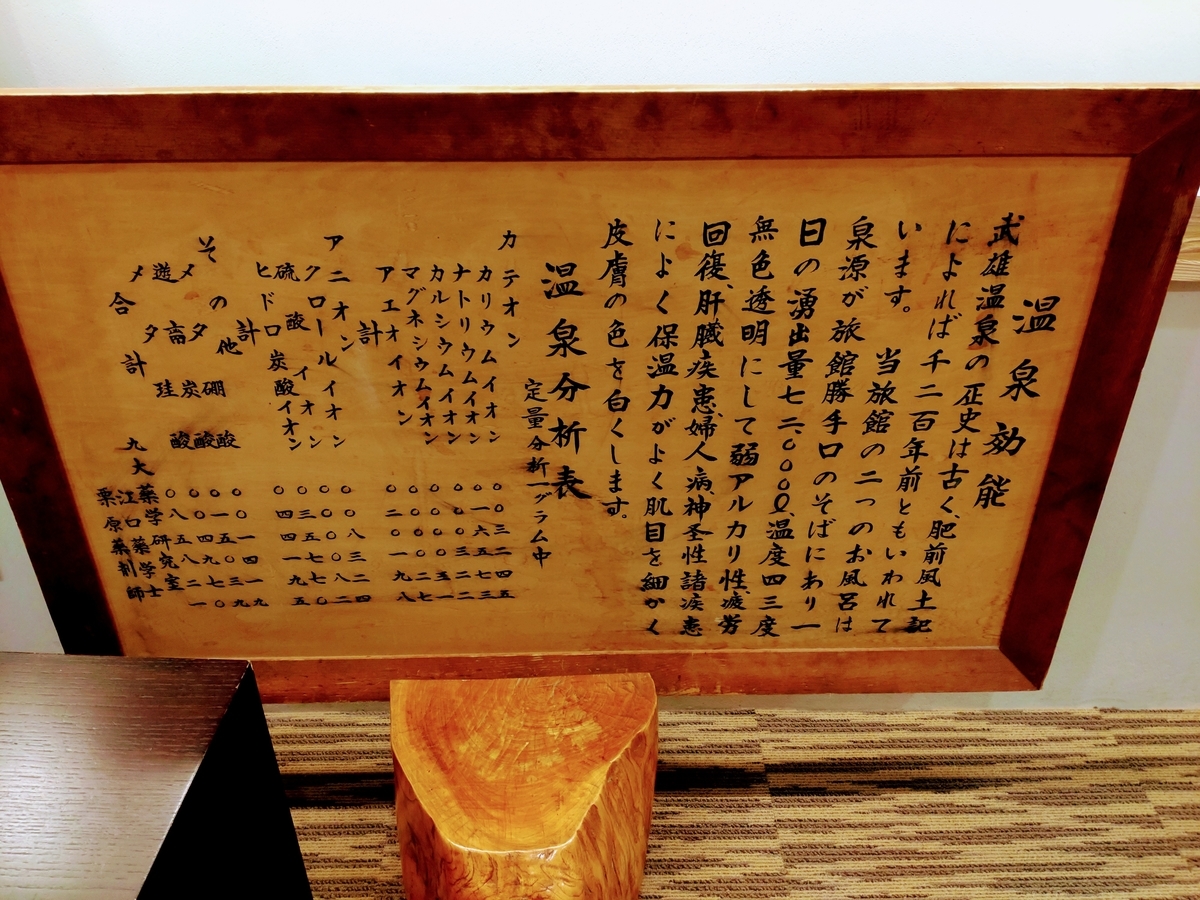 温泉効能
武雄温泉の歴史は古く、肥前風土記
によれば千二百年前ともいわれて
います。 当旅館の二つのお風呂は
泉源が旅館勝手口のそばにあり一
日の湧出量七二、〇〇〇ℓ、温度四三度
無色透明にして弱アルカリ性、疲労
回復、肝臓疾患、婦人病、神圣性諸疾患
によく保温力がよく肌目を細かく
皮膚の色を白くします。
温泉分析表
定量分析一グラム中
カテオン
カリウムイオン 〇〇三二四五
ナトリウムイオン 〇一六五七三
カルシウムイオン 〇〇〇三二二
マグネシウムイオン 〇〇〇〇五一
アエオイオン 〇〇〇〇二七
計 〇二〇一九八
アニオン
クロールイオン 〇〇八三二四
硫酸イオン 〇〇〇〇八二
ヒドロ炭酸イオン 〇三五七七〇
計 〇四四一九五
その他
メタ硼酸 〇〇一四一九
遊离炭酸 〇一五〇三九
メタ珪酸 〇〇四九七〇
合計 〇八五八二一
九大薬学研究室
江口薬学士
栗原薬剤師